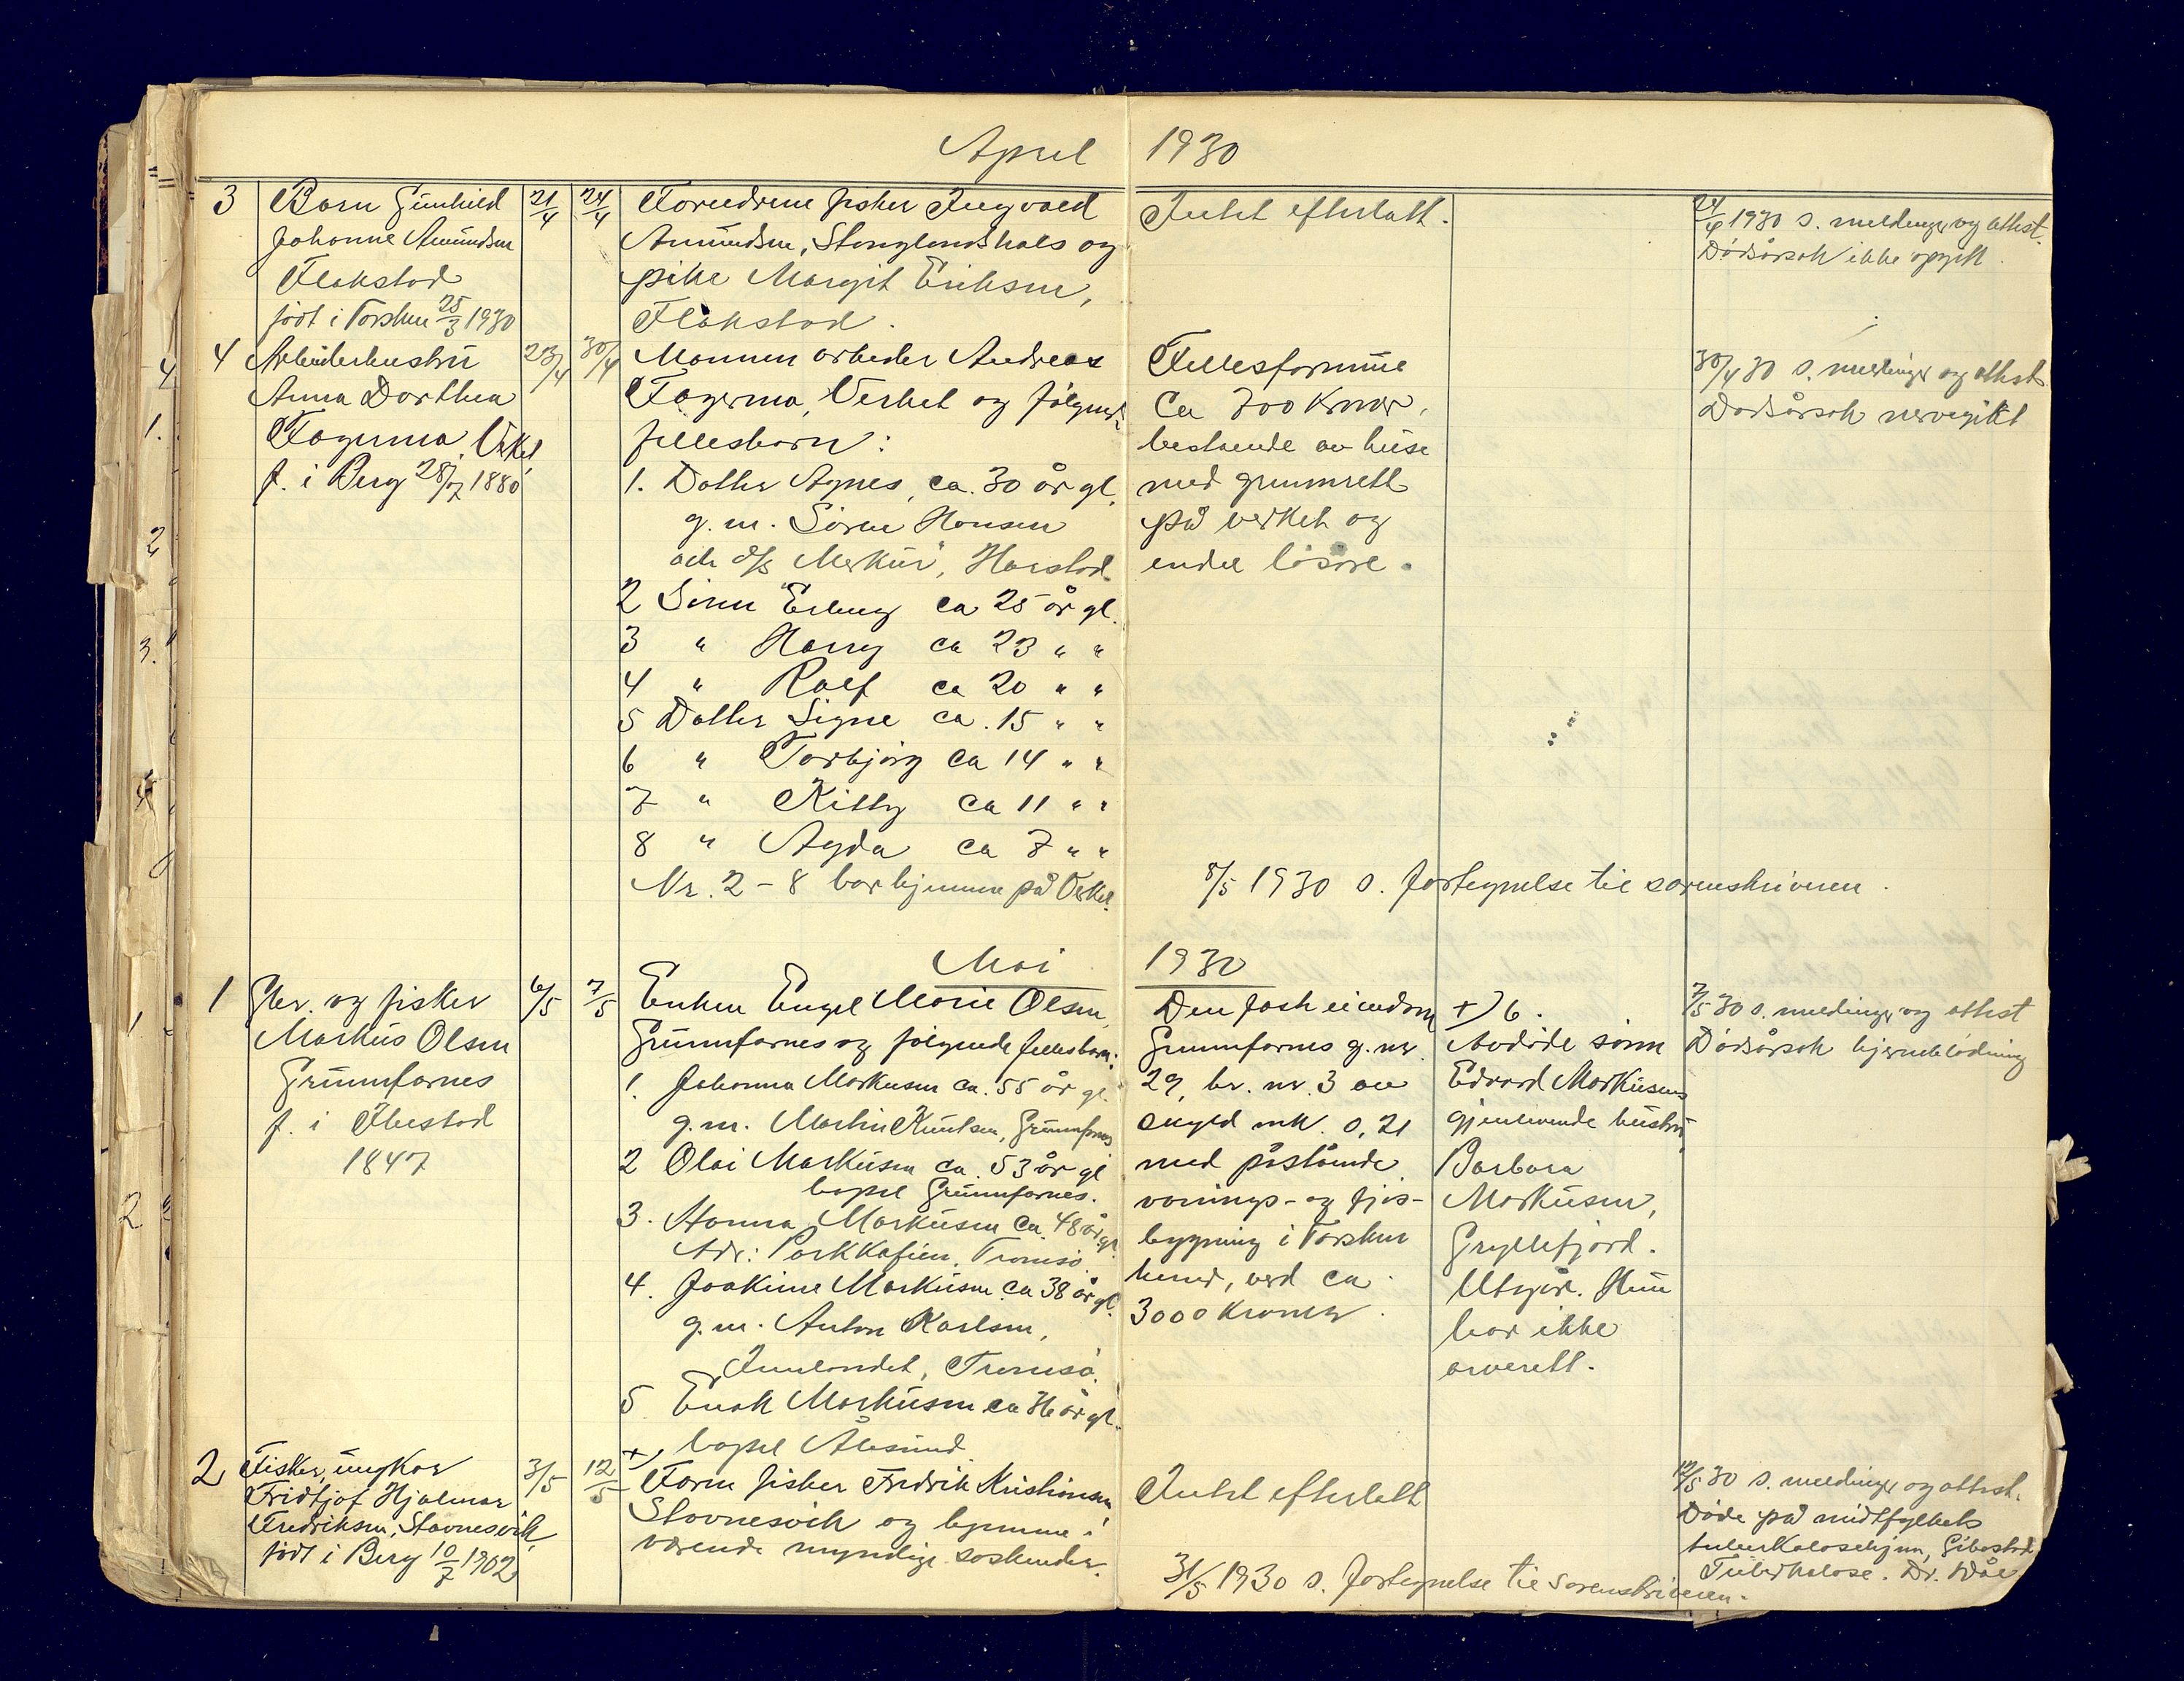 April 1930
3 Barn Gunhild
Johanne Amundsen
Flakstad
født i Torsken 25/3 1930
21/4
24/4
Foreldrene fisker Ingvald
Amundsen, Stonglandshals og
pike Margit Eriksen,
Flakstad.
Intet efterlatt.
24/4 1930 s. melding og attest.
Dødsårsak ikke opgitt.
4 Arbeiderhustru
Anna Dorthea
Fagermo, Verket
f. i Berg 28/7 1880
23/4
30/4
Mannen arbeider Andreas
Fagermo, Verket og følgende
fellesbarn:
1. Datter Agnes, ca. 30 år gl.
g. m. Sören Hansen
d/s "Merkur", Harstad.
2 Sönn Erling ca 25 år gl.
3 " Harry ca 23 " "
4 " Rolf ca 20 " "
5 Datter Signe ca. 15 " "
6 " Torbjörg ca 14 " "
7 " Kitty ca 11 " "
8 " Agda ca 7 " "
Nr. 2 - 8 bor hjemme på Verket.
Fellesformue
Ca 700 Kroner,
bestående av huse
med grunnrett
på verket og
endel lösöre.
30/4 30 s. melding og attest
Dødsårsak nervegikt
8/5 1930 s. fortegnelse til sorenskriveren.
Mai 1930
1 Gbr. og fisker
Markus Olsen
Grunnfarnes
f. i Ibestad
1847
6/5
7/5
Enken Engel Marie Olsen,
Grunnfarnes og følgende fellesbarn:
1. Johanna Markusen ca. 55 år gl.
g. m. Martin Knutsen, Grunnfarnes
2 Olai Markusen ca. 53 år gl
bopel Grunnfarnes.
3. Hanna Markusen ca. 48 år gl.
Adr: Parkkafeen, Tromsö.
4. Joakime Markusen ca 38 år gl.
g. m. Anton Karlsen,
Innlandet, Tromsö.
5 Enok Markusen ca 36 år gl.
+) bopel Ålesund
Den faste eiendom
Grunnfarnes g. nr.
29, br. nr. 3 av
skyld mk. 0,21
med påstående
vånings- og fjös-
bygning i Torsken
herred, verd ca
3000 Kroner.
+) 6.
Avdöde sönn
Edvard Markusens
gjenlevende hustru
Barbara
Markusen,
Gryllefjord.
Utgår. Hun
har ikke
arverett.
7/5 30 s. melding og attest
Dødsårsak hjerneblödning
2 Fisker, ungkar
Fridtjof Hjalmar
Fredriksen, Stavnesvik,
født i Berg 10/7 1902
3/5
12/5
Faren fisker Fredrik Kristiansen
Stavnesvik og hjemme-
værende myndige söskender.
Intet efterlatt
12/5 30 s. melding og attest.
Døde på midtfylkets
tuberkulosehjem, Gibostad
Tuberkulose. Dr.
31/5 1930 s. fortegnelse til sorenskriveren.